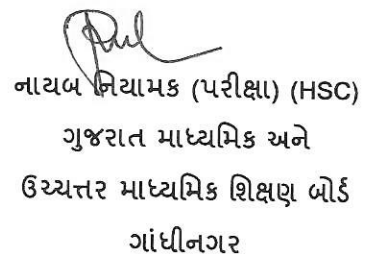 નાયબ નિયામક (પરીક્ષા) (HSC)
ગુજરાત માધ્યમિક અને
ઉચ્ચત્તર માધ્યમિક શિક્ષણ બોર્ડ
ગાંધીનગર